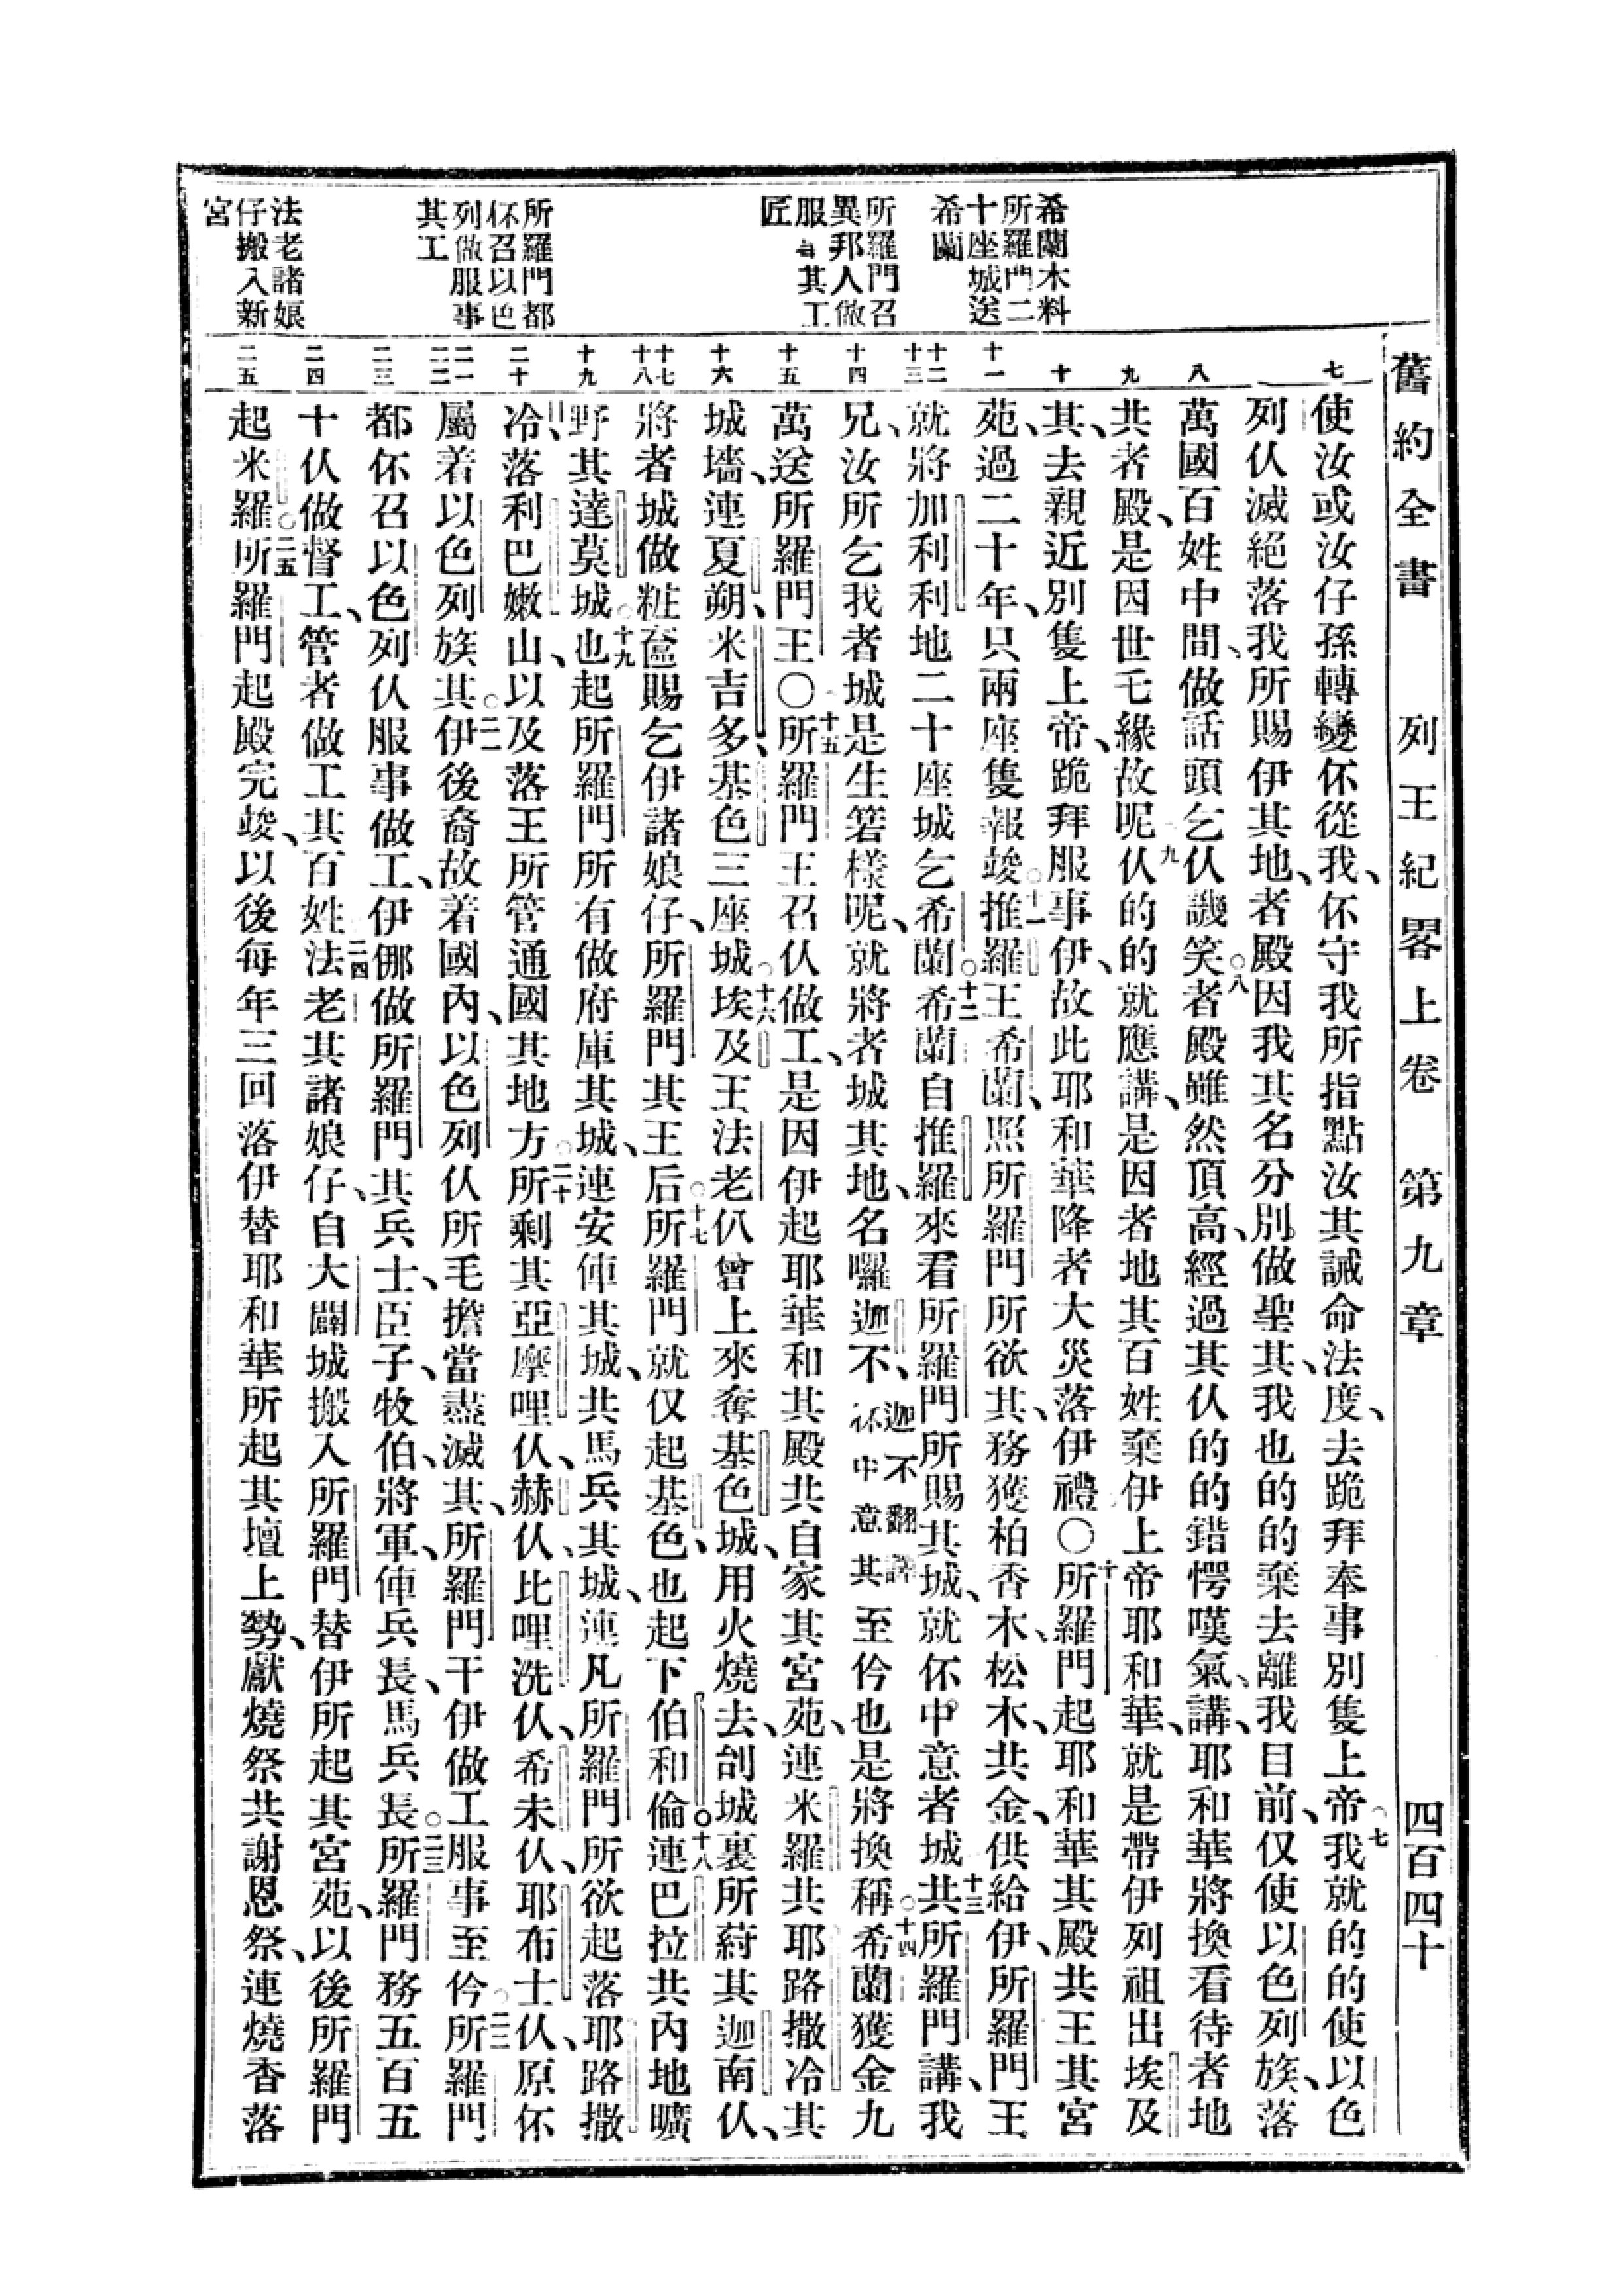 舊約全書 列王紀畧上卷 第九章 四百四十
希蘭木料
所羅門二
十座城送
希蘭
所羅門召
異邦人做
服事其工
匠
所羅門都
伓召以色
列做服事
其工
法老諸娘
仔搬入新
宮
七
八
九
十
十一
十二
十三
十四
十五
十六
十七
十八
十九
二十
二一
二二
二三
二四
二五
使汝或汝仔孫轉變伓從我、伓守我所指點汝其誡命法度、去跪拜奉事別隻上帝○七我就的的使以色
列仈滅絕落我所賜伊其地、者殿因我其名分別做聖其、我也的的棄去離我目前、仅使以色列族、落
萬國百姓中間、做話頭乞仈譏笑○八者殿雖然頂高、經過其仈的的錯愕嘆氣、講、耶和華將換看待者地
共者殿、是因世乇緣故呢九仈的的就應講、是因者地其百姓棄伊上帝耶和華、就是帶伊列祖出埃及
其、去親近別隻上帝、跪拜服事伊、故此耶和華降者大災落伊禮○十所羅門起耶和華其殿共王其宮
苑、過二十年、只兩座隻報竣○十一推羅王希蘭、照所羅門所欲其、務獲柏香木、松木、共金、供給伊、所羅門王
就將加利利地二十座城乞希蘭○十二希蘭自推羅來看所羅門所賜其城、就伓中意者城十三共所羅門講、我
兄、汝所乞我者城是生箬樣呢、就將者城其地、名囉迦不、迦不翻譯伓中意其至仱也是將換稱○十四希蘭獲金九
萬送所羅門王○十五所羅門王召仈做工、是因伊起耶華和其殿共自家其宮苑、連米羅共耶路撒冷其
城墻、連夏朔、米吉多、基色三座城○十六埃及王法老仈曾上來奪基色城、用火燒去、刣城裏所蒔其迦南仈、
將者城做粧奩賜乞伊諸娘仔、所羅門其王后○十七所羅門就仅起基色、也起下伯和倫○十八連巴拉共內地曠
野其達莫城○十九也起所羅門所有做府庫其城、連安俥其城、共馬兵其城、連凡所羅門所欲起落耶路撒
冷、落利巴嫩山、以及落王所管通國其地方○二十所剩其亞摩哩仈、赫仈、比哩洗仈、希未仈、耶布士仈、原伓
屬着以色列族其○二一伊後裔、故着國內、以色列仈所乇擔當盡滅其、所羅門干伊做工服事至仱○二二所羅門
都伓召以色列仈服事做工、伊㑚做所羅門其兵士、臣子、牧伯、將軍、俥兵長、馬兵長○二三所羅門務五百五
十仈做督工、管者做工其百姓二四法老其諸娘仔、自大闢城搬入所羅門替伊所起其宮苑、以後所羅門
起米羅○二五所羅門起殿完竣、以後每年三回落伊替耶和華所起其壇上勢、獻燒祭共謝恩祭、連燒香落